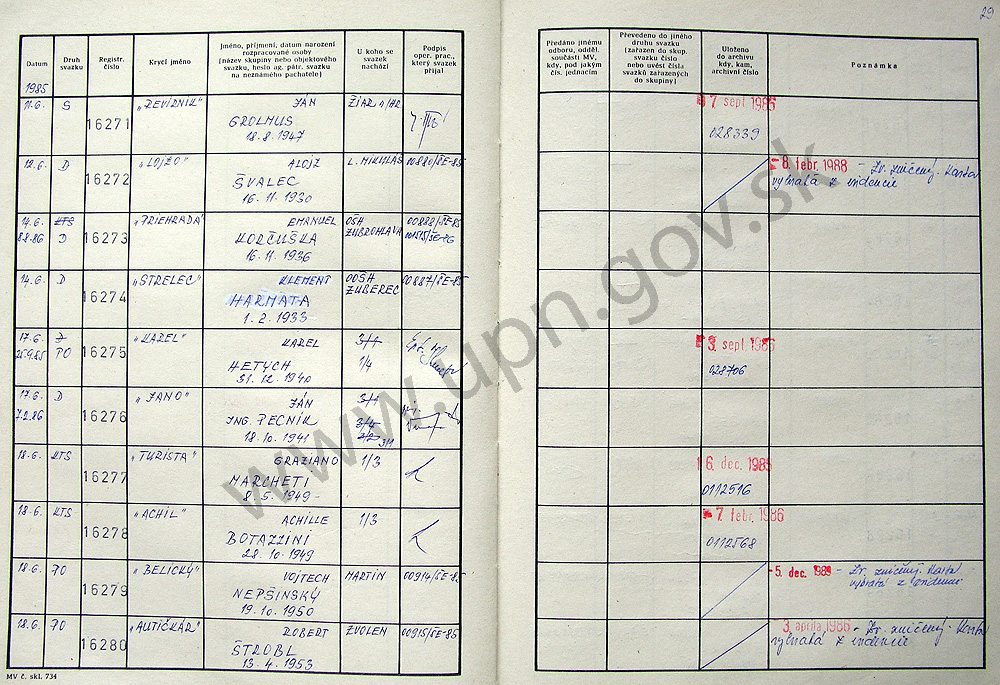 29
Datum
Druh svazku
Registr. číslo
Krycí jméno
Jméno, příjmení, datum narození rozpracované osoby (název skupiny nebo objektového svazku, heslo ag. pátr. svazku na neznámého pachatele)
U koho se svazek nachází
Podpis oper. prac., který svazek přijal
Předáno jinému odboru, odděl. součásti MV, kdy, pod jakým čís. jednacím
Převedeno do jiného druhu svazku (zařazen do skup. svazku číslo nebo uvést čísla svazků zařazených do skupiny)
Uloženo do archivu kdy, kam, archivní číslo
Poznámka
1985
11.6. S 16271 „REVÍRNIK" JÁN ŽIAR n/HR 7 sept 1986
GROLMUS 028339
18.8.1947
12.6. D 16272 „LOJZO" ALOJZ L. MIKULÁŠ 00880/ŠE-85 - 8. febr. 1988 - Zv. zničený. Karta
ŠVALEC vybratá z evidencie
16.11.1930
14.6. KTS 16273 „PRIEHRADA" EMANUEL OSH 00888/ŠE-85
8.8.86 D KORČUŠKA ZUBROHLAVA
16.11.1936
14.6. D 16274 „STRELEC" KLEMENT OOSH 00887/ŠE-85
HARMATA ZUBEREC
1.2.1933
17.6. 16275 „KAREL" KAREL 3/1 3. sept 1986
25.9.85 PO HETYCH 1/4 028706
31.12.1940
17.6. D 16276 „JANO" JÁN 3/1
7.2.86 ING. PECNÍK 3/4
18.10.1941 3/1
18.6. KTS 16277 „TURISTA" GRAZIANO 1/3 6. dec. 1985
MARCHETI 0112516
8.5.1949
18.6. KTS 16278 „ACHIL" ACHILLE 1/3 7. febr. 1986
BOTAZZINI 0112568
28.10.1949
18.6. PO 16279 „BELICKÝ" VOJTECH MARTIN 00914/ŠE-85 - 5. dec. 1988 - Zv. zničený. Karta
NEPŠINSKÝ vybratá z evidencie
19.10.1950
18.6. PO 16280 „AUTIČKÁR" ROBERT ZVOLEN 00915/ŠE-85 3. apríla 1986 - Zv. zničený - Karta
ŠTROBL vybratá z evidencie
13.4.1953
MV č. skl. 734
www.upn.gov.sk